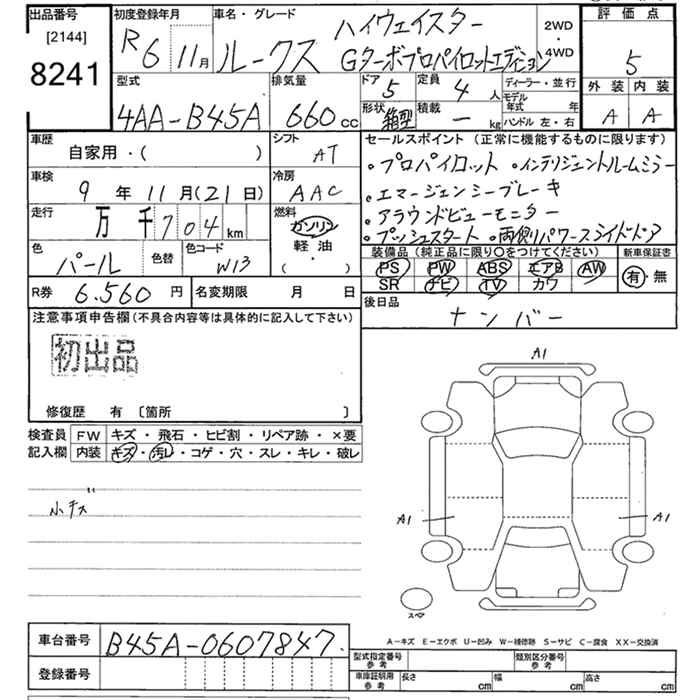 出品番号 初度登録年月 車名・グレード 2WD・4WD 評価点
[2144] R6 11月 ルークス ハイウェイスター
8241 Gターボプロパイロットエディション 5
型式 排気量 ドア 定員 ディーラー・並行 外装 内装
4AA-B45A 660cc 5 4人 モデル年式 年 A A
形状 箱型 積載 ー kg ハンドル 左・右
車歴 自家用・( ) シフト AT セールスポイント (正常に機能するものに限ります)
・プロパイロット ・インテリジェントルームミラー
車検 9年11月(21日) 冷房 AAC ・エマージェンシーブレーキ
走行 万千704km 燃料 ガソリン 軽油・( ) ・アラウンドビューモニター
・プッシュスタート ・両側パワースライドドア
色 パール 色替 色コード W13 装備品(純正品に限り○をつけてください) 新車保証書
PS PW ABS エアB AW 有・無
R券 6.560円 名変期限 月 日 SR ナビ TV カワ
注意事項申告欄(不具合内容等は具体的に記入して下さい) 後日品 ナンバー
初出品
修復歴 有 〔箇所 〕
検査員 FW キズ・飛石・ヒビ割・リペア跡・×要
記入欄 内装 キズ・汚レ・コゲ・穴・スレ・キレ・破レ
小キズ
A1
A1 A1
スペア
A-キズ E-エクボ U-凹み W-補修跡 S-サビ C-腐食 XX-交換済
車台番号 B45A-0607847. 型式指定番号 参考 類別区分番号 参考
登録番号 車庫証明用 参考 長さ cm 幅 cm 高さ cm